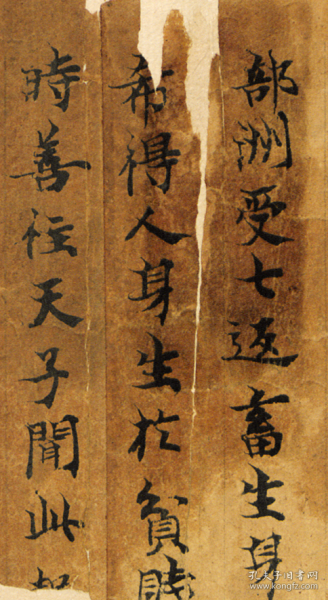 部洲受七返畜生身
希得人身生於貧賤
時善住天子聞此
孔夫子旧书网
www.kongfz.com